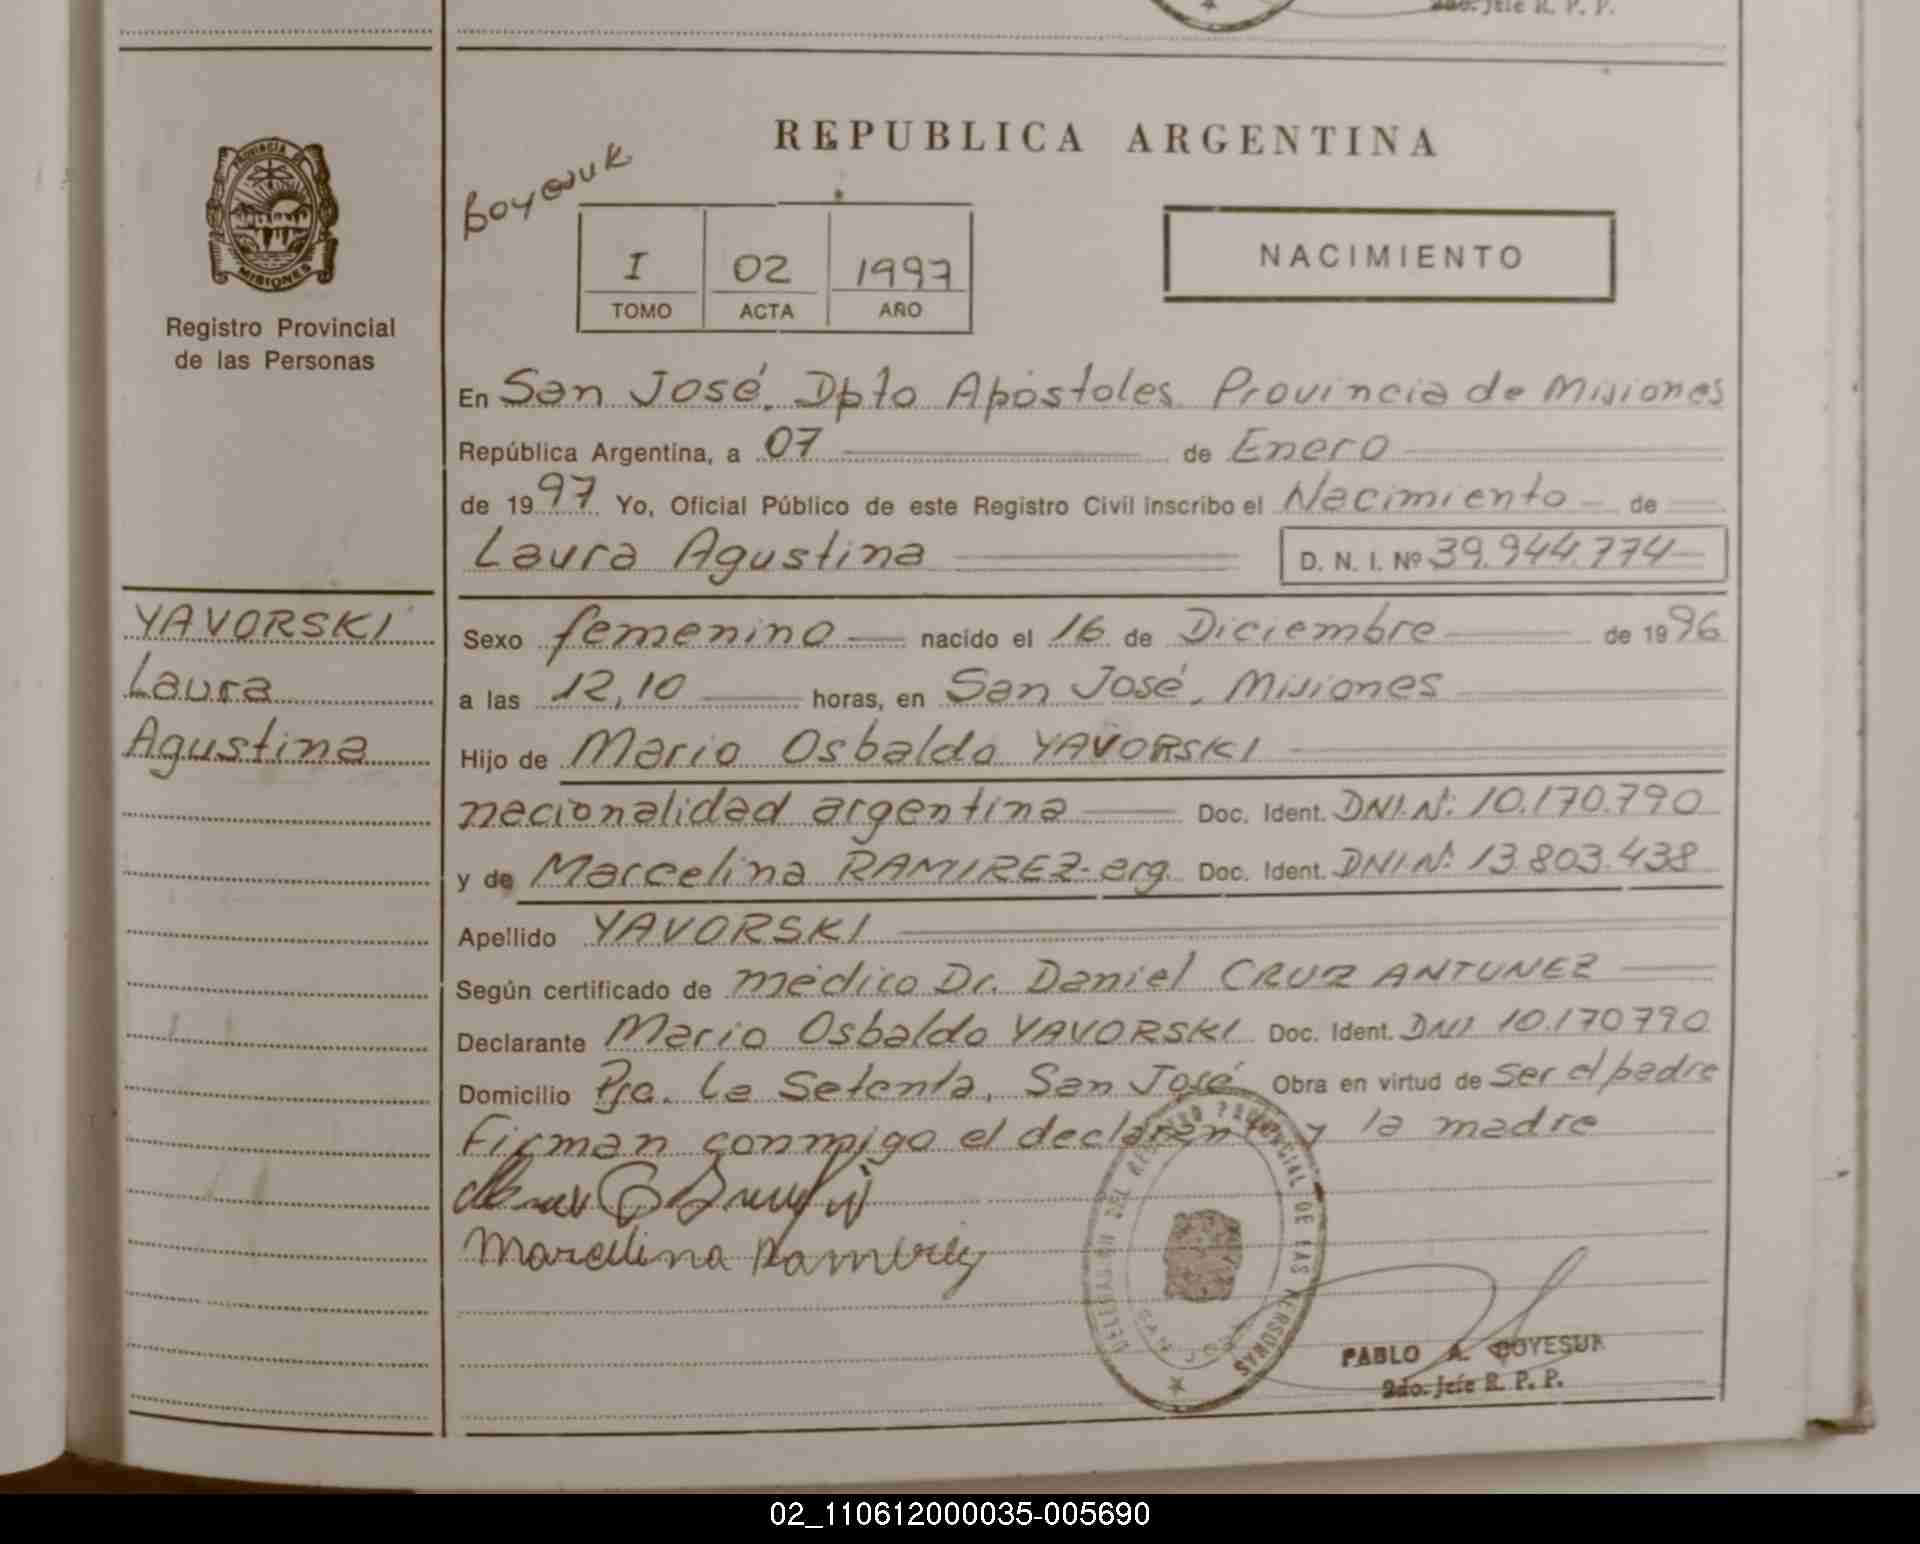 2do. Jefe R. P. P.
REPUBLICA ARGENTINA
PROVINCIA DE
MISIONES
Registro Provincial
de las Personas
I 02 1997
TOMO ACTA AÑO
NACIMIENTO
En San José. Dpto Apóstoles. Provincia de Misiones
República Argentina, a 07 de Enero
de 1997 Yo, Oficial Público de este Registro Civil inscribo el Nacimiento de
Laura Agustina D. N. I. Nº 39.944.774
YAVORSKI
Laura
Agustina
Sexo femenino nacido el 16 de Diciembre de 1996
a las 12,10 horas, en San José, Misiones
Hijo de Mario Osbaldo YAVORSKI
nacionalidad argentina Doc. Ident. DNI.Nº: 10.170.790
y de Marcelina RAMIREZ-arg. Doc. Ident. DNI.Nº: 13.803.438
Apellido YAVORSKI
Según certificado de médico Dr. Daniel CRUZ ANTUNEZ
Declarante Mario Osbaldo YAVORSKI Doc. Ident. DNI 10.170790
Domicilio Pje. La Setenta, San José Obra en virtud de ser el padre
Firman conmigo el declarante y la madre
Marcelina Ramirez
DELEGACION DEL REGISTRO PROVINCIAL DE LAS PERSONAS
SAN JOSE
PABLO A. BOYESUK
2do. Jefe R. P. P.
02_110612000035-005690